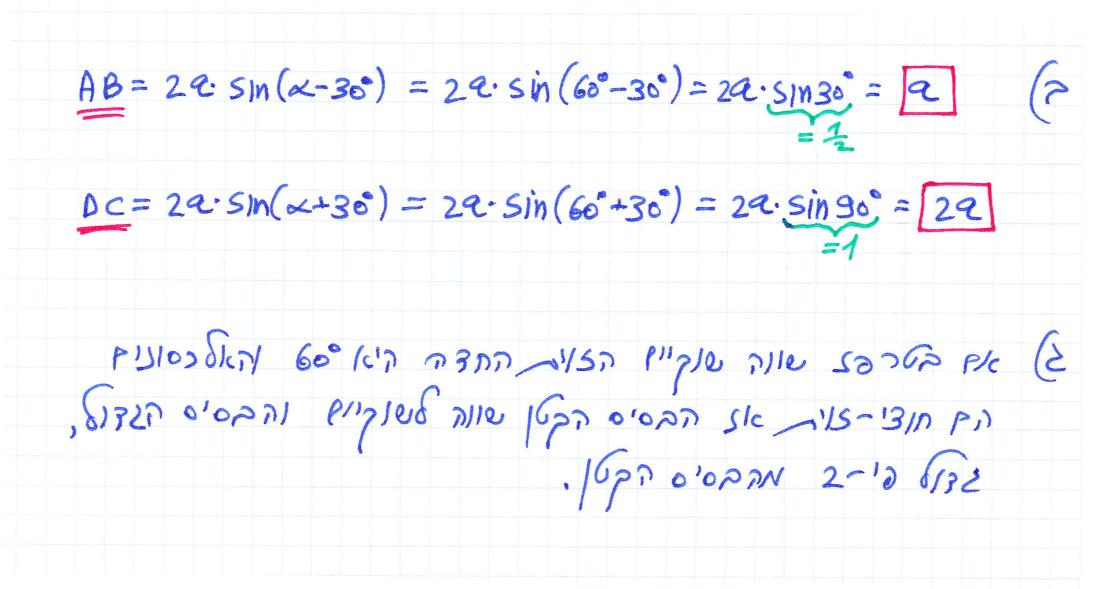 ב) AB = 2a·sin(α-30°) = 2a·sin(60°-30°) = 2a·sin30° = a
= 1/2
DC = 2a·sin(α+30°) = 2a·sin(60°+30°) = 2a·sin90° = 2a
=1
ג) אם בטרפז שווה שוקיים הזוית החדה היא 60° והאלכסונים
הם חוצי-זוית אז הבסיס הקטן שווה לשוקיים והבסיס הגדול,
גדול פי-2 מהבסיס הקטן.